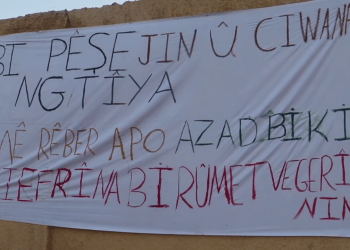 BI PÊŞEJIN Û CIWANA
NGTÎYA
NÊ RÊBER APO AZAD BİKİ
IEFRÎNA BI RÛMET VEGERÎ
NIN